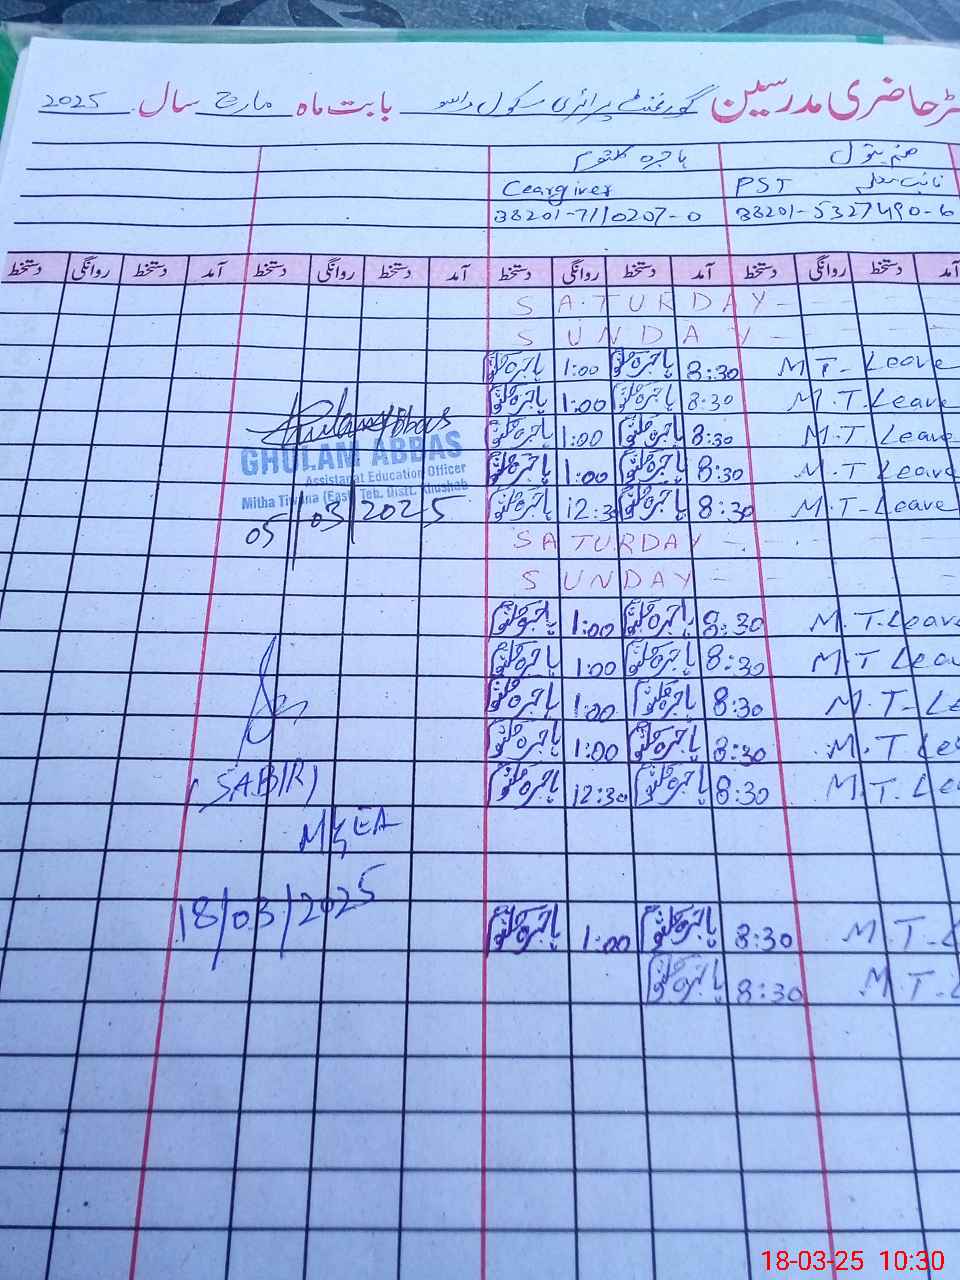 رجسٹر حاضری مدرسین گورنمنٹ پرائمری سکول بابت ماہ مارچ سال 2025
ہاجرہ کلثوم صنم بتول
Ceargiver PST
38201-7110207-0 38201-5327490-6
آمد دستخط روانگی دستخط آمد دستخط روانگی دستخط آمد دستخط روانگی دستخط آمد دستخط روانگی دستخط
SATURDAY
SUNDAY
ہاجرہ کلثوم 1:00 ہاجرہ کلثوم 8:30 M T - Leave
ہاجرہ کلثوم 1:00 ہاجرہ کلثوم 8:30 M.T. Leave
ہاجرہ کلثوم 1:00 ہاجرہ کلثوم 8:30 M.T Leave
ہاجرہ کلثوم 1:00 ہاجرہ کلثوم 8:30 M.T Leave
ہاجرہ کلثوم 12:30 ہاجرہ کلثوم 8:30 M.T- Leave
Ghulam Abbas
GHULAM ABBAS
Assistant Education Officer
Mitha Tiwana (East) Teh. Distt. Khushab
05/03/2025
SATURDAY
SUNDAY
ہاجرہ کلثوم 1:00 ہاجرہ کلثوم 8:30 M.T. Leave
ہاجرہ کلثوم 1:00 ہاجرہ کلثوم 8:30 M.T Leave
ہاجرہ کلثوم 1:00 ہاجرہ کلثوم 8:30 M.T- Le
ہاجرہ کلثوم 1:00 ہاجرہ کلثوم 8:30 M.T Le
ہاجرہ کلثوم 12:30 ہاجرہ کلثوم 8:30 M.T. Le
(SABIR)
MEA
18/03/2025
ہاجرہ کلثوم 1:00 ہاجرہ کلثوم 8:30 M T - L
ہاجرہ کلثوم 8:30 M.T- L
18-03-25 10:30